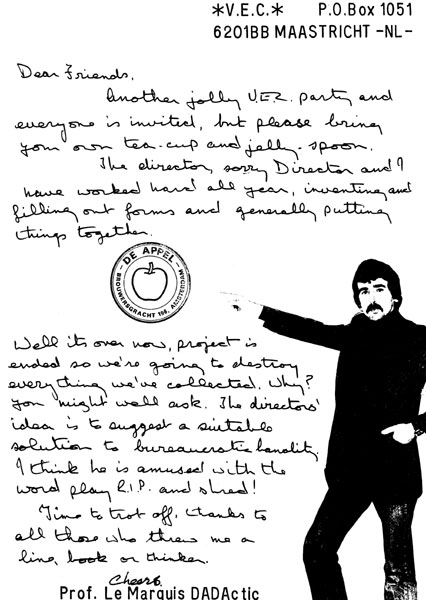 *V.E.C.* P.O.Box 1051
6201BB MAASTRICHT -NL-
Dear Friends,
Another jolly V.E.C. party and
everyone is invited, but please bring
your own tea-cup and jelly-spoon.
The director, sorry Director and I
have worked hard all year, inventing and
filling out forms and generally putting
things together.
DE APPEL
BROUWERSGRACHT 196, AMSTERDAM
Well its over now, project is
ended so we're going to destroy
everything we've collected. Why?
You might well ask. The directors'
idea is to suggest a suitable
solution to bureaucratic banality.
I think he is amused with the
word play R.I.P. and shred!
Time to trot off, thanks to
all those who threw me a
line, book or thinker.
Cheers,
Prof. Le Marquis DADActic